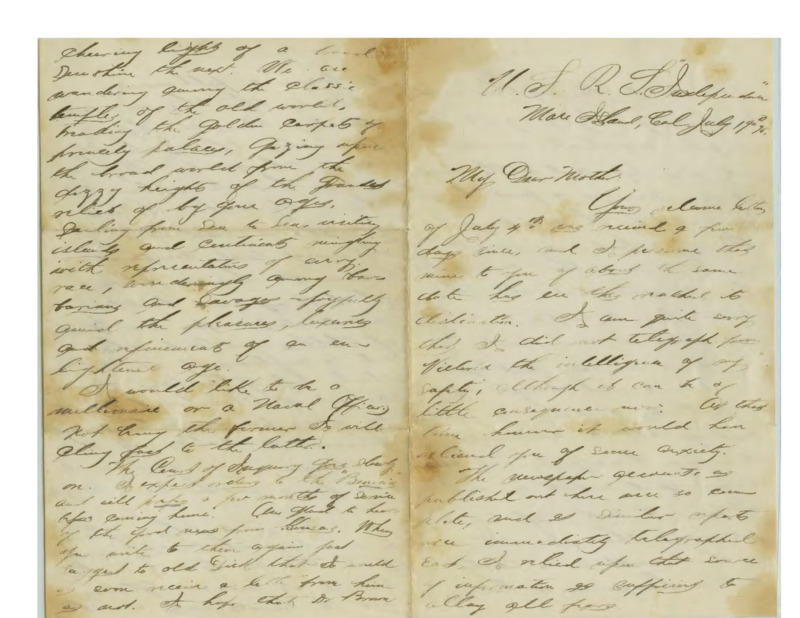 U. S. R. S. "Independence"
Mare Island, Cal. July 19th
My Dear Mother.
Your welcome letter
of July 4th was received a few
days since, and I presume that
mine to you of about the same
date has ere this reached its
destination. I am quite sorry
that I did not telegraph from
Victoria the intelligence of my
safety, although it can be of
little consequence now. At that
time however it would have
relieved you of some anxiety.
The newspaper accounts as
published out here are so com
plete, and as similar reports
were immediately telegraphed
East, I relied upon that source
of information as sufficient to
allay all fears
cheering light of a
Sunshine the next. We are
wandering among the classic
temples of the old world,
treading the golden carpets of
princely palaces, gazing upon
the broad world from the
dizzy heights of the grandest
relics of by gone ages.
Sailing from Sea to Sea, visiting
islands and continents mingling
with representatives of every
race, wandering among bar
barians and Savages
amid the pleasures, luxuries
and refinements of an en
lightened age.
I would like to be a
millionaire or a Naval Officer,
Not being the former I will
cling fast to the latter.
The Court of Inquiry goes slowly
on. I expect orders to the
and will a few months of service
before coming home. Am glad to hear
of the good news from Kansas. When
you write to them again just
suggest to old Dick that I would
as soon receive a letter from him
as not. I hope that Dr Brown